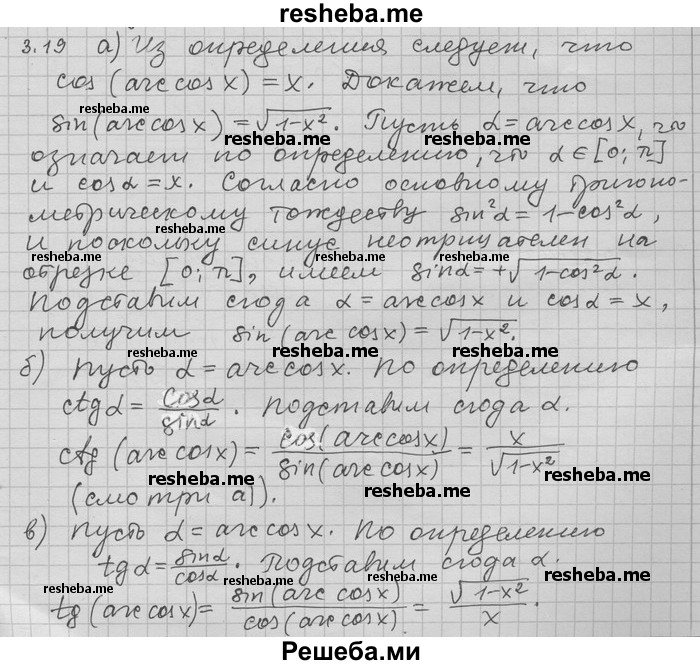 resheba.me
3.19 а) Из определения следует, что
cos(arccosx)=x. Докажем, что
sin(arccosx)=√1-x². Пусть α=arccosx, что
означает по определению, что α∈[0;π]
и cosα=x. Согласно основному тригоно-
метрическому тождеству sin²α=1-cos²α,
и поскольку синус неотрицателен на
отрезке [0;π], имеем sinα=+√1-cos²α.
Подставим сюда α=arccosx и cosα=x,
получим sin(arccosx)=√1-x².
б) Пусть α=arccosx. По определению
ctgα=cosα/sinα. Подставим сюда α.
ctg(arccosx)=cos(arccosx)/sin(arccosx)=x/√1-x²
(смотри а)).
в) Пусть α=arccosx. По определению
tgα=sinα/cosα. Подставим сюда α.
tg(arccosx)=sin(arccosx)/cos(arccosx)=√1-x²/x.
resheba.me
resheba.me
resheba.me
resheba.me
resheba.me
resheba.me
resheba.me
resheba.me
resheba.me
resheba.me
resheba.me
resheba.me
Решеба.ми